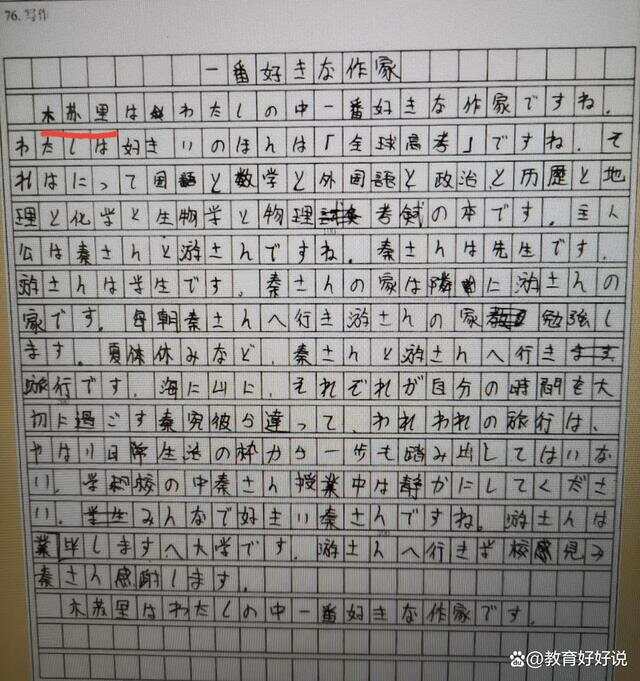 76. 写作
一番好きな作家
木苏里はわたしの中一番好きな作家ですね.
わたしは好きいのほんは「全球高考」ですね. そ
れはにって国語と数学と外国語と政治と历歴と地
理と化学と生物学と物理考試の本です. 主人
公は秦さんと游さんですね. 秦さんは先生です.
游さんは学生です. 秦さんの家は隣に游さんの
家です. 毎朝秦さんへ行き游さんの家勉強し
ます. 夏体休みなど, 秦さんと游さんへ行き
旅行です. 海に山に, それぞれが自分の時間を大
切に過ごす秦究彼ら違って, われわれの旅行は,
やはり日常生活の枠から一歩も踏み出してはいな
い. 学校の中秦さん授業中は静かにしてくださ
い. みんなで好きい秦さんですね. 游さんは
業毕しますへ大学です. 游さんへ行き学校見て
秦さん感謝します.
木苏里はわたしの中一番好きな作家です.
@教育好好说